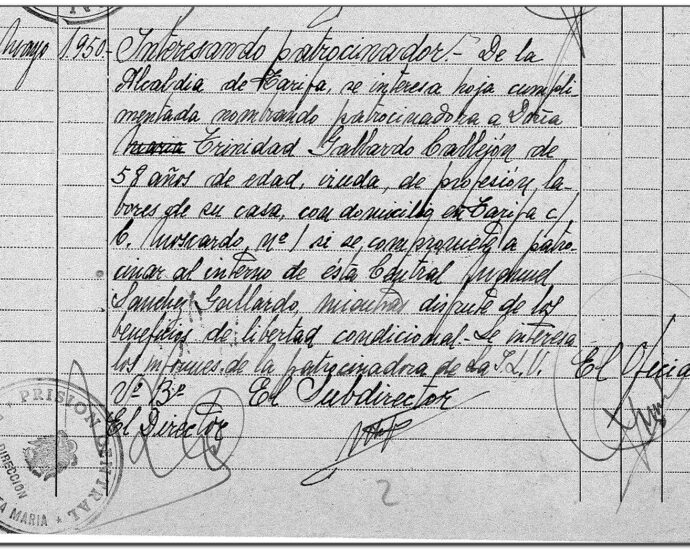 Mayo 1950- Interesando patrocinador.- De la
Alcaldia de Tarifa, se interesa hoja cumpli-
mentada nombrando patrocinadora a Doña
Maria Trinidad Gallardo Callejón de
59 años de edad, viuda, de profesión, la-
bores de su casa, con domicilio en Tarifa c/
G. Moscardo, nº 1 si se compromete a patro-
cinar al interno de ésta Central
Sanchez Gallardo, mientras disfrute de los
beneficios de libertad condicional.- Se interesa
los informes de la patrocinadora de la J.L.V.
Vº Bº El Subdirector El Oficial
El Director
PRISION CENTRAL
DIRECCION
TA MARIA
2